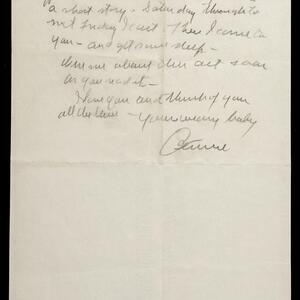 a short story - Saturday through to
next Friday I cast. Then I come to
you - and get some sleep -
Wire me about this act soon
as you read it -
Love you and think of you
all the time - Your weary baby